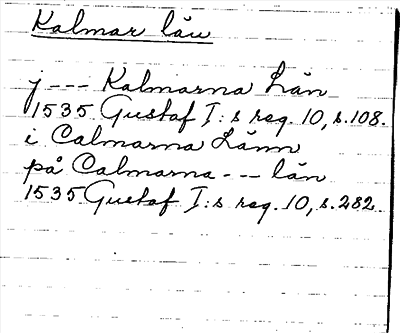 Kalmar län
j --- Kalmarna Län
1535 Gustaf I:s reg. 10, s.108.
i Calmarna Länn
på Calmarna --- län
1535 Gustaf I:s reg. 10, s.282